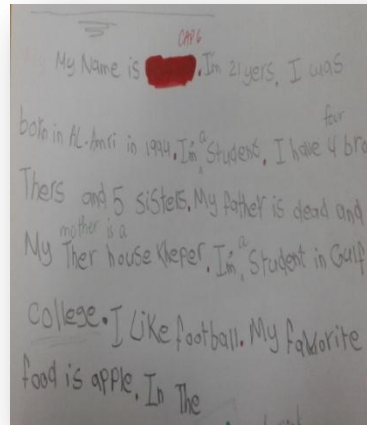 CAP6
My Name is . I'm 21 yers, I was
four
born in AL-Amri in 1994. I'm a Student, I have 4 bro
Thers and 5 sisters. My father is dead and
mother is a
My Ther house Kheper. I'm a Student in Gulf
college. I Like football. My favorite
food is apple. In The